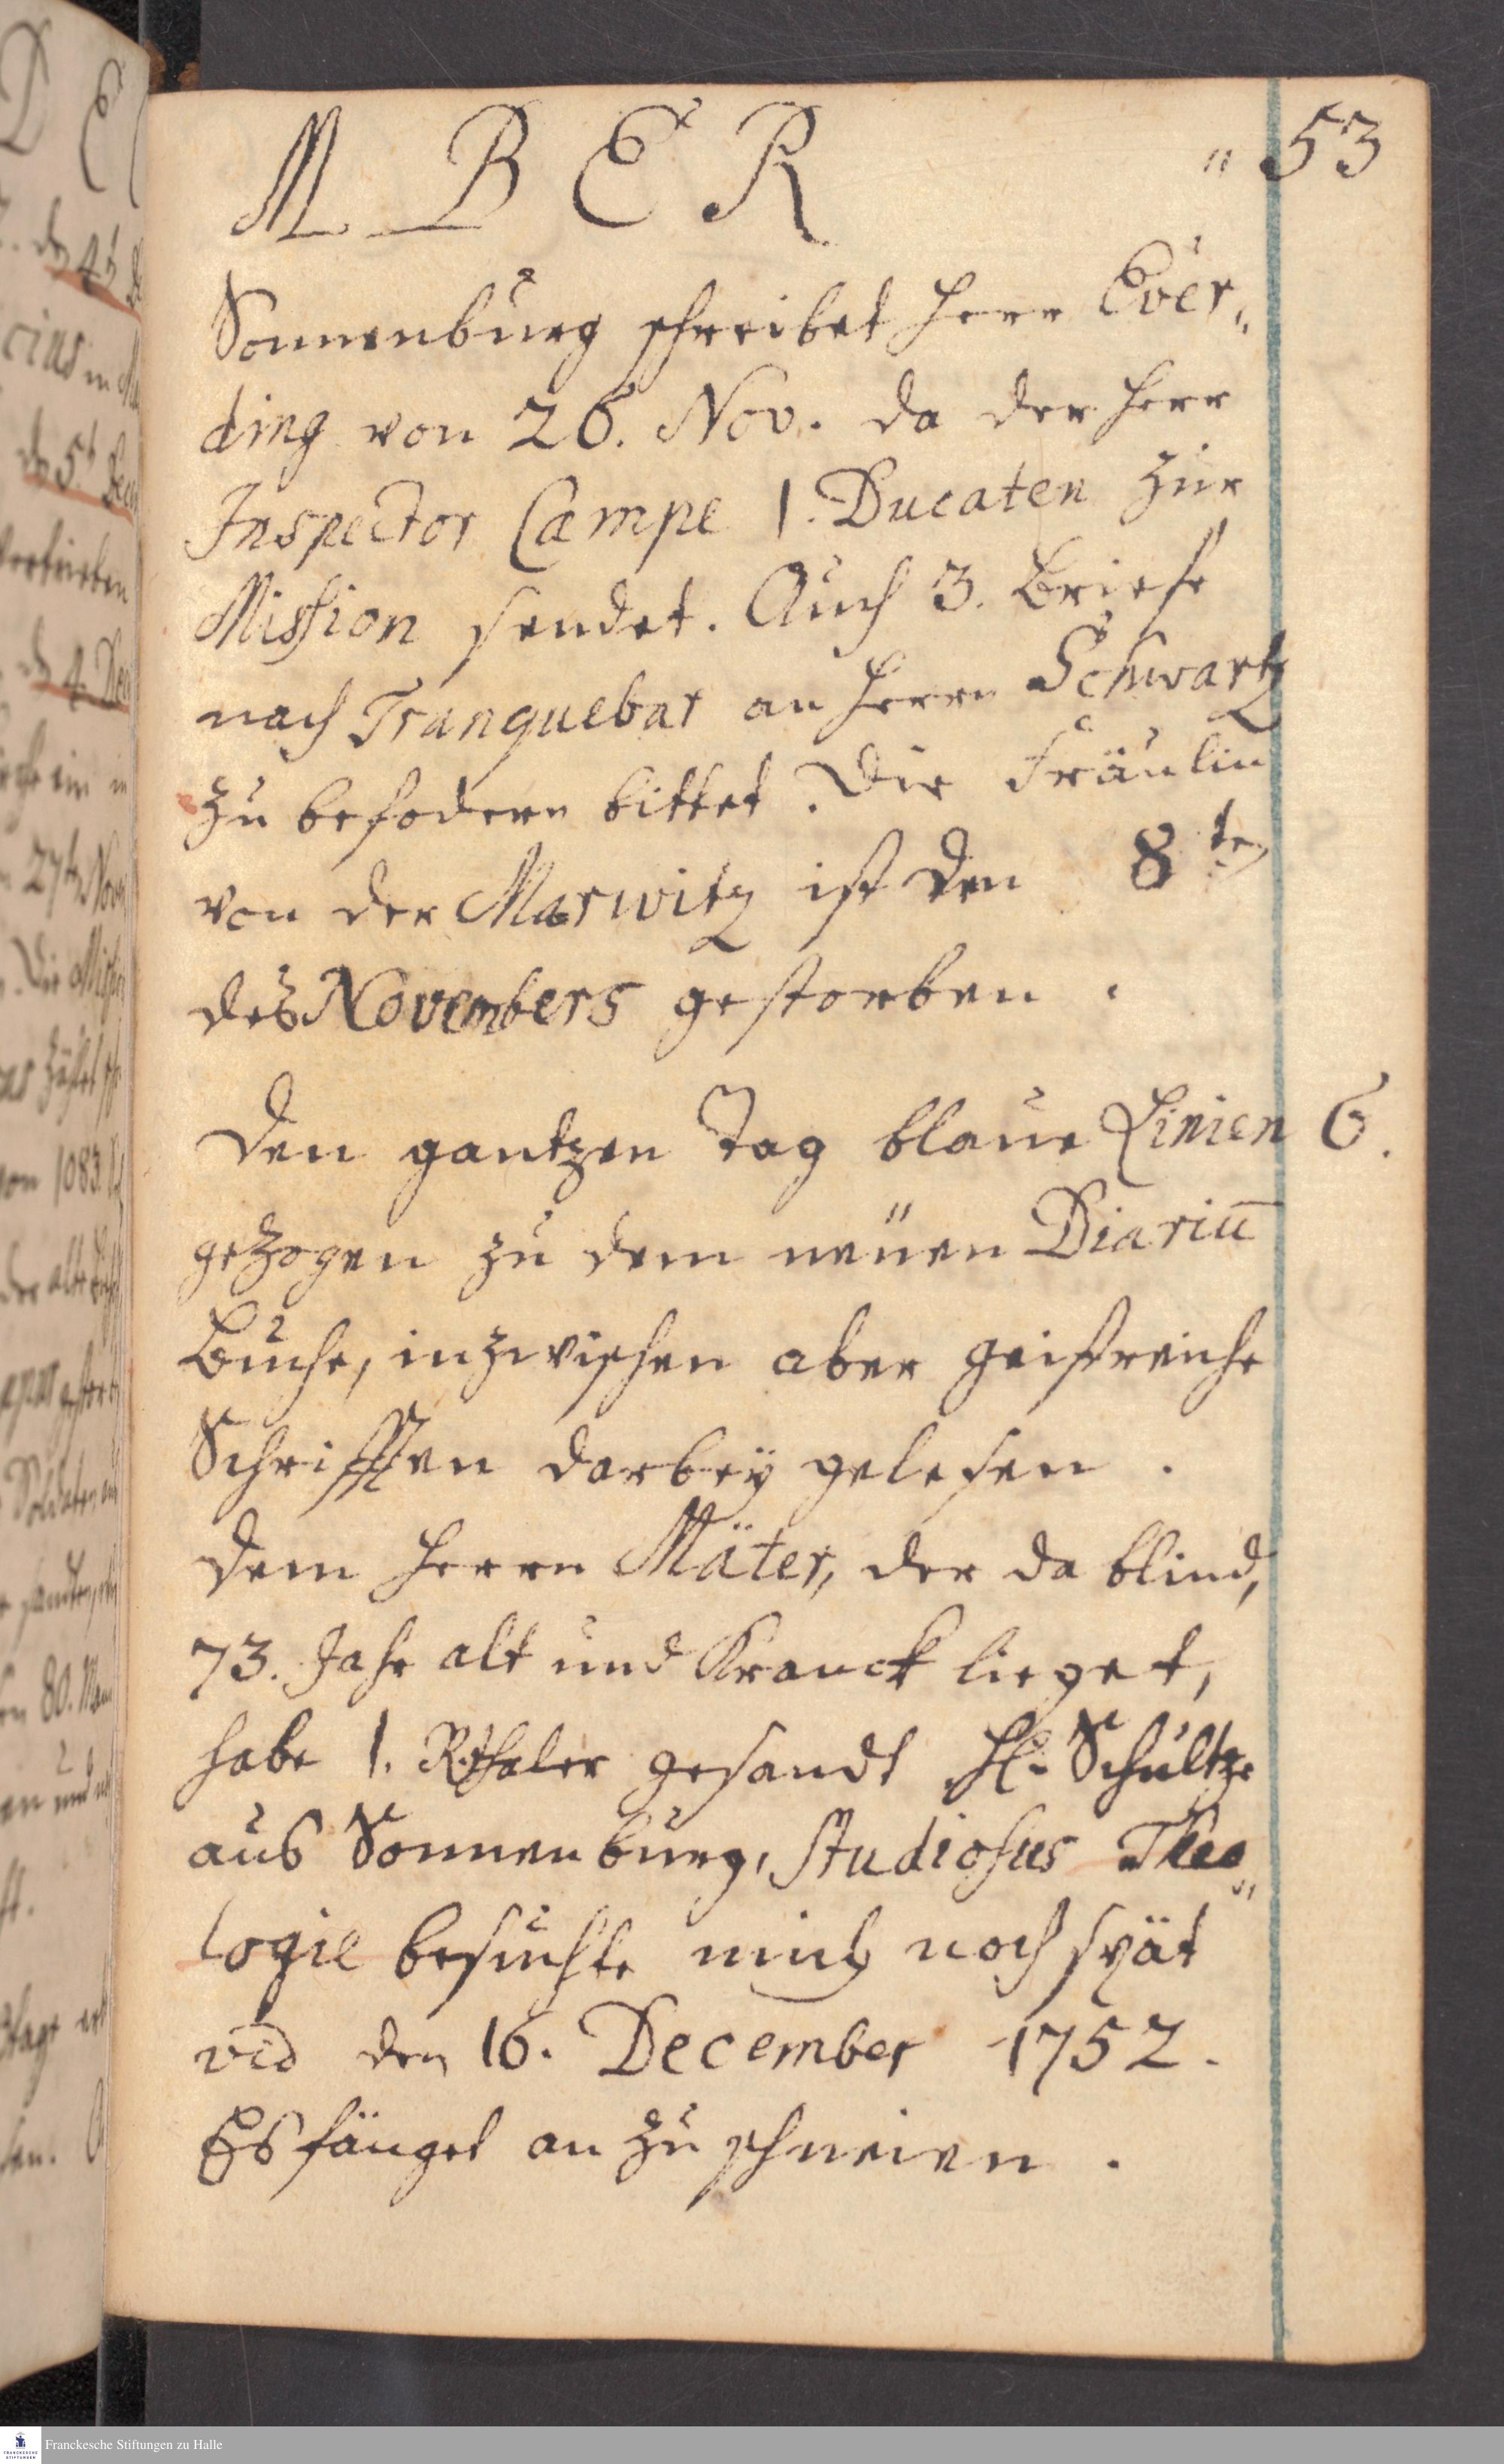 MBER " 53
Sonnenburg schreibet Herr Ever„
ding von 26. Nov. da der Herr
Inspector Campe 1. Ducaten zur
Mission sendet. Auch 3. Briefe
nach Tranquebar an Herrn Schwartz
zu befodern bittet. Die Fräulin
von der Marwitz ist den 8ten
des Novembers gestorben.
Den gantzen Tag blaue Linien 6.
gezogen zu dem neüen Diariū
Buche, inzwischen aber geistreiche
Schrifften darbeÿ gelesen.
Dem Herrn Mäter, der da blind,
73. Jahr alt und Kranck lieget,
habe 1. Rthaler gesandt H. Schultze
aus Sonnenburg, Studiosus Theo„
logie besuchte mich noch spät
vid den 16. December 1752.
Es fänget an zu schneien.
Franckesche Stiftungen zu Halle